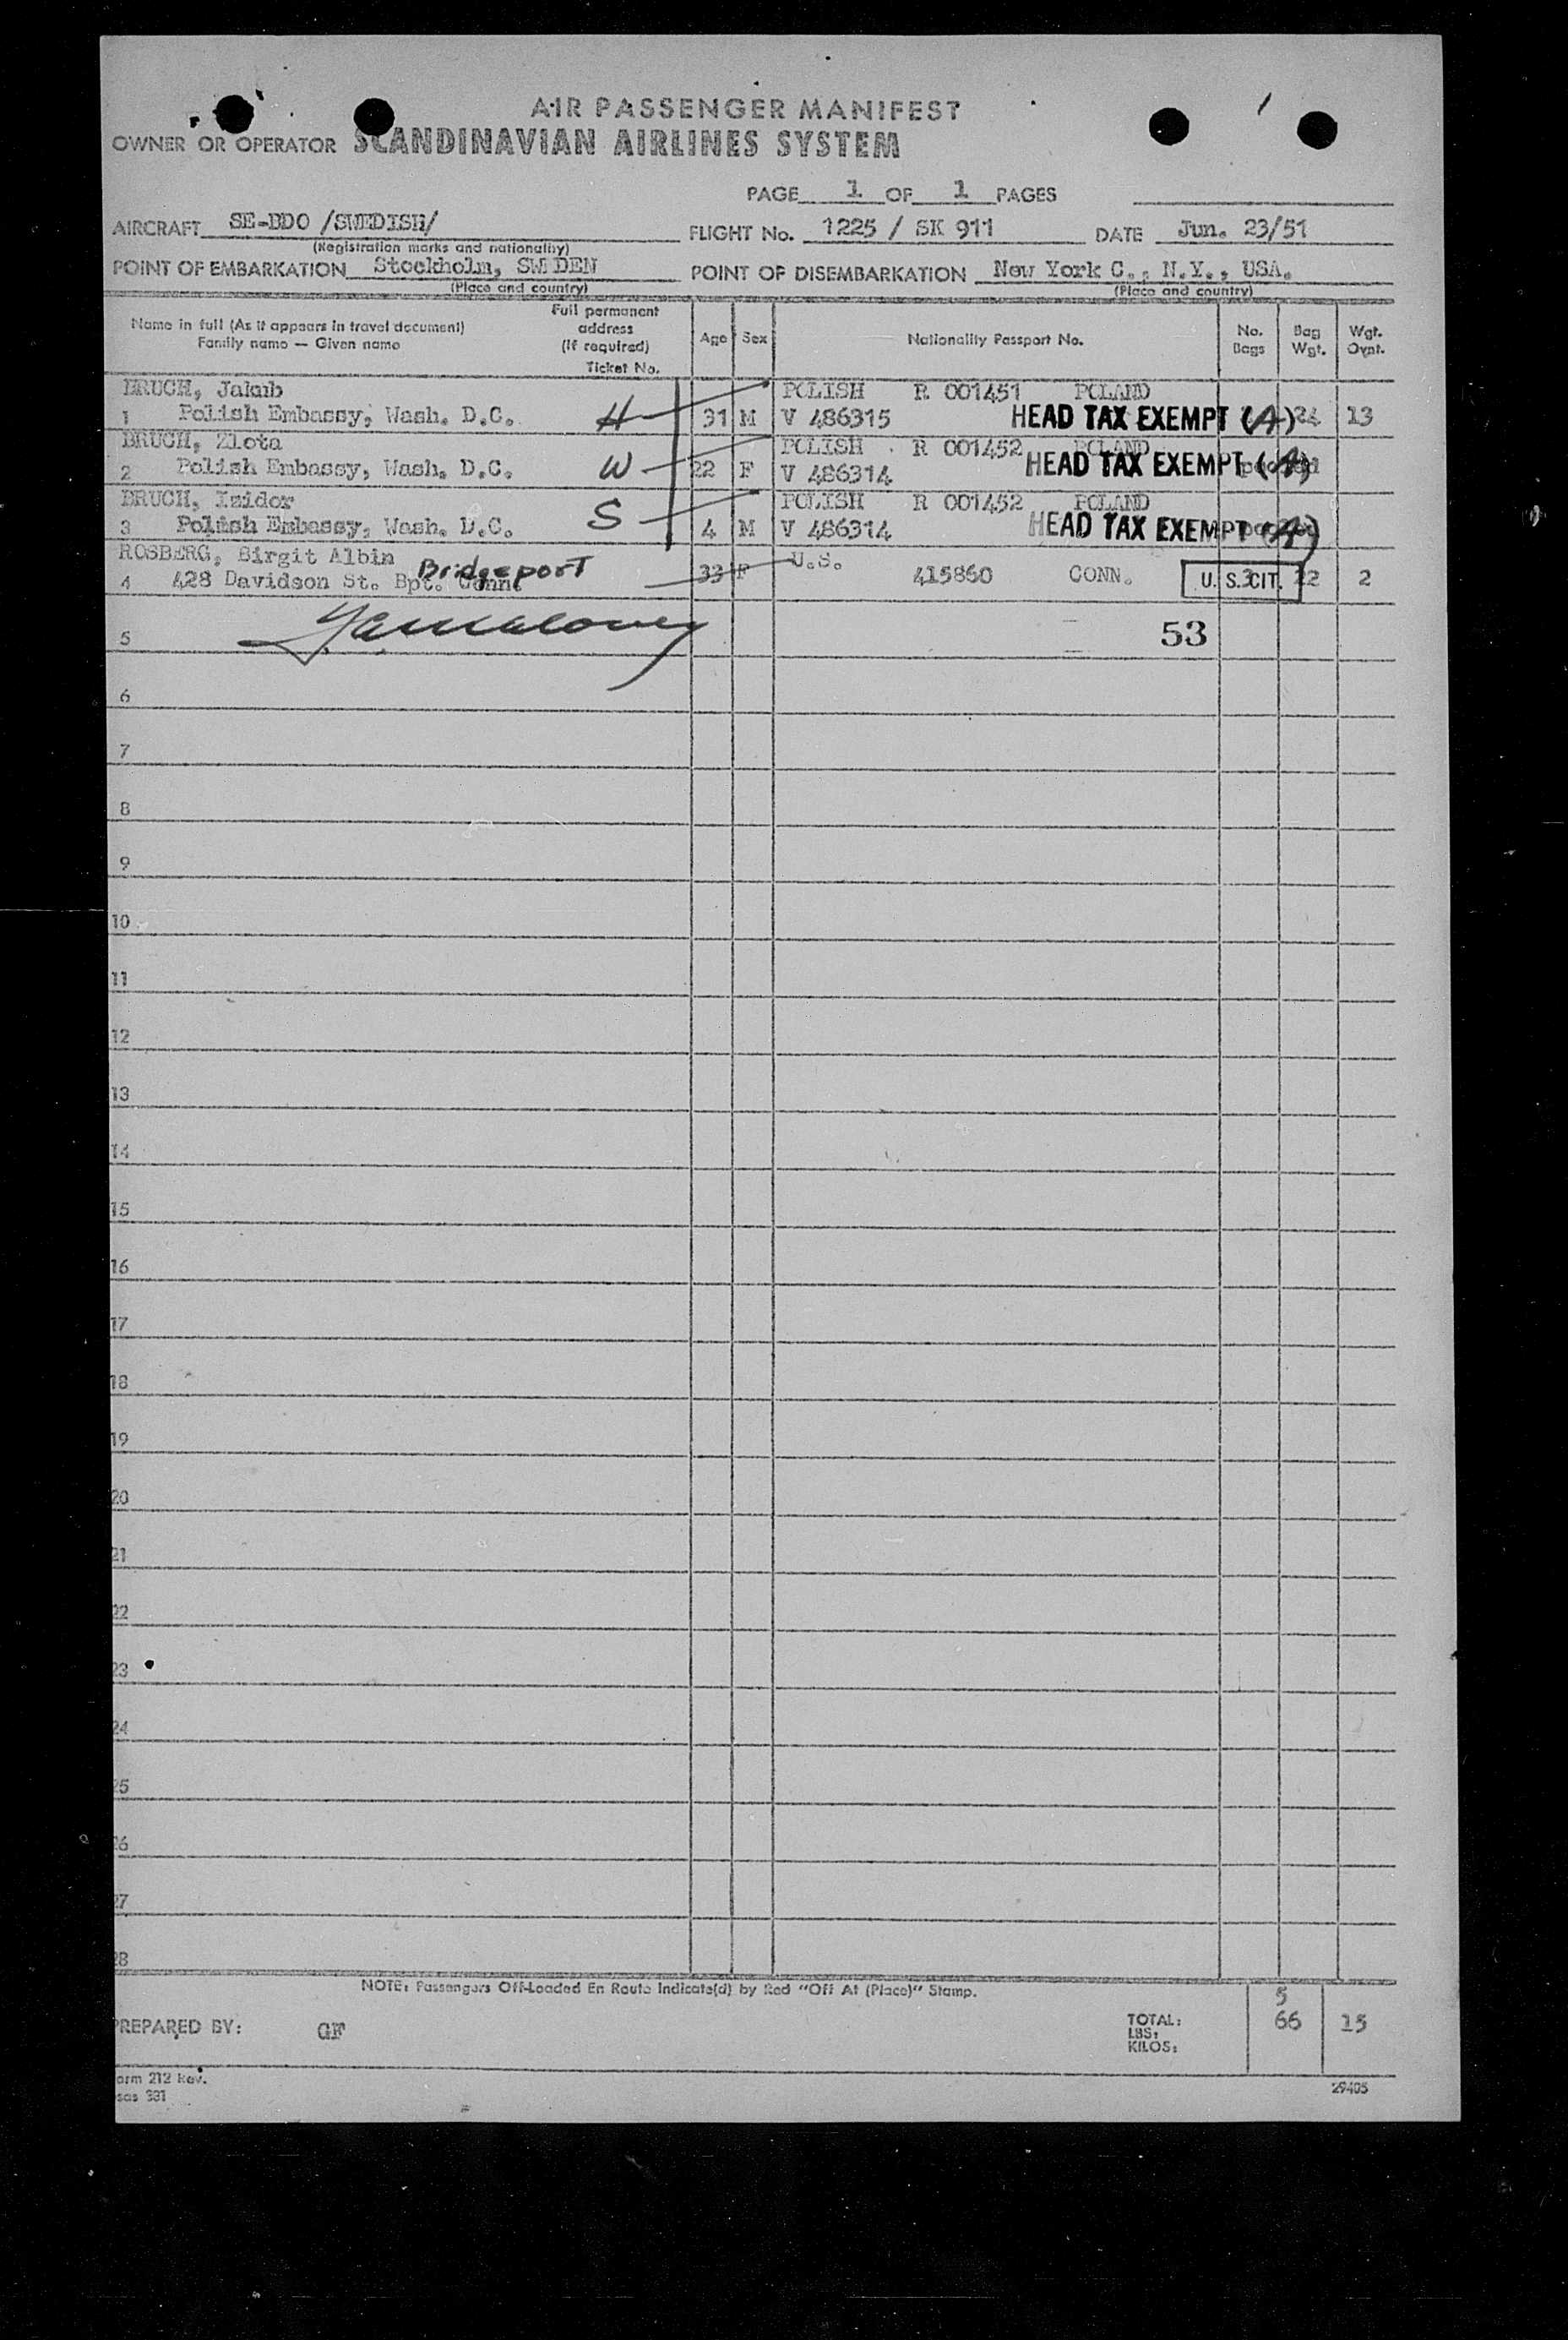 AIR PASSENGER MANIFEST
OWNER OR OPERATOR SCANDINAVIAN AIRLINES SYSTEM
PAGE 1 OF 1 PAGES
AIRCRAFT SE-BDO /SWEDISH/ FLIGHT No. 1225 / SK 911 DATE Jun. 23/51
(Registration marks and nationality)
POINT OF EMBARKATION Stockholm, SW DEN POINT OF DISEMBARKATION New York C., N.Y., USA.
(Place and country) (Place and country)
Name in full (As it appears in travel document)
Family name — Given name
Full permanent
address
(If required)
Ticket No.
Age Sex Nationality Passport No. No. Bags Bag Wgt. Wgt. Ovnt.
BRUCH, Jakub POLISH R 001451 POLAND
1 Polish Embassy, Wash. D.C. H 31 M V 486315 HEAD TAX EXEMPT (A) 24 13
BRUCH, Zlota POLISH R 001452 POLAND
2 Polish Embassy, Wash. D.C. W 22 F V 486314 HEAD TAX EXEMPT (A)
BRUCH, Izidor POLISH R 001452 POLAND
3 Polish Embassy, Wash. D.C. S 4 M V 486314 HEAD TAX EXEMPT (A)
ROSBERG, Birgit Albin U.S.
4 428 Davidson St. Bpt. Conn. Bridgeport 33 F 415860 CONN. U.S. CIT. 22 2
5 53
6
7
8
9
10
11
12
13
14
15
16
17
18
19
20
21
22
23
24
25
26
27
28
NOTE: Passengers Off-Loaded En Route Indicate(d) by Red "Off At (Place)" Stamp.
5
PREPARED BY: GF TOTAL: 66 15
LBS:
KILOS:
orm 212 Rev.
sas 331 29405